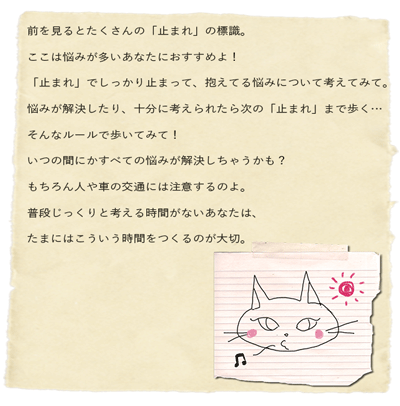 前を見るとたくさんの「止まれ」の標識。
ここは悩みが多いあなたにおすすめよ！
「止まれ」でしっかり止まって、抱えてる悩みについて考えてみて。
悩みが解決したり、十分に考えられたら次の「止まれ」まで歩く…
そんなルールで歩いてみて！
いつの間にかすべての悩みが解決しちゃうかも？
もちろん人や車の交通には注意するのよ。
普段じっくりと考える時間がないあなたは、
たまにはこういう時間をつくるのが大切。